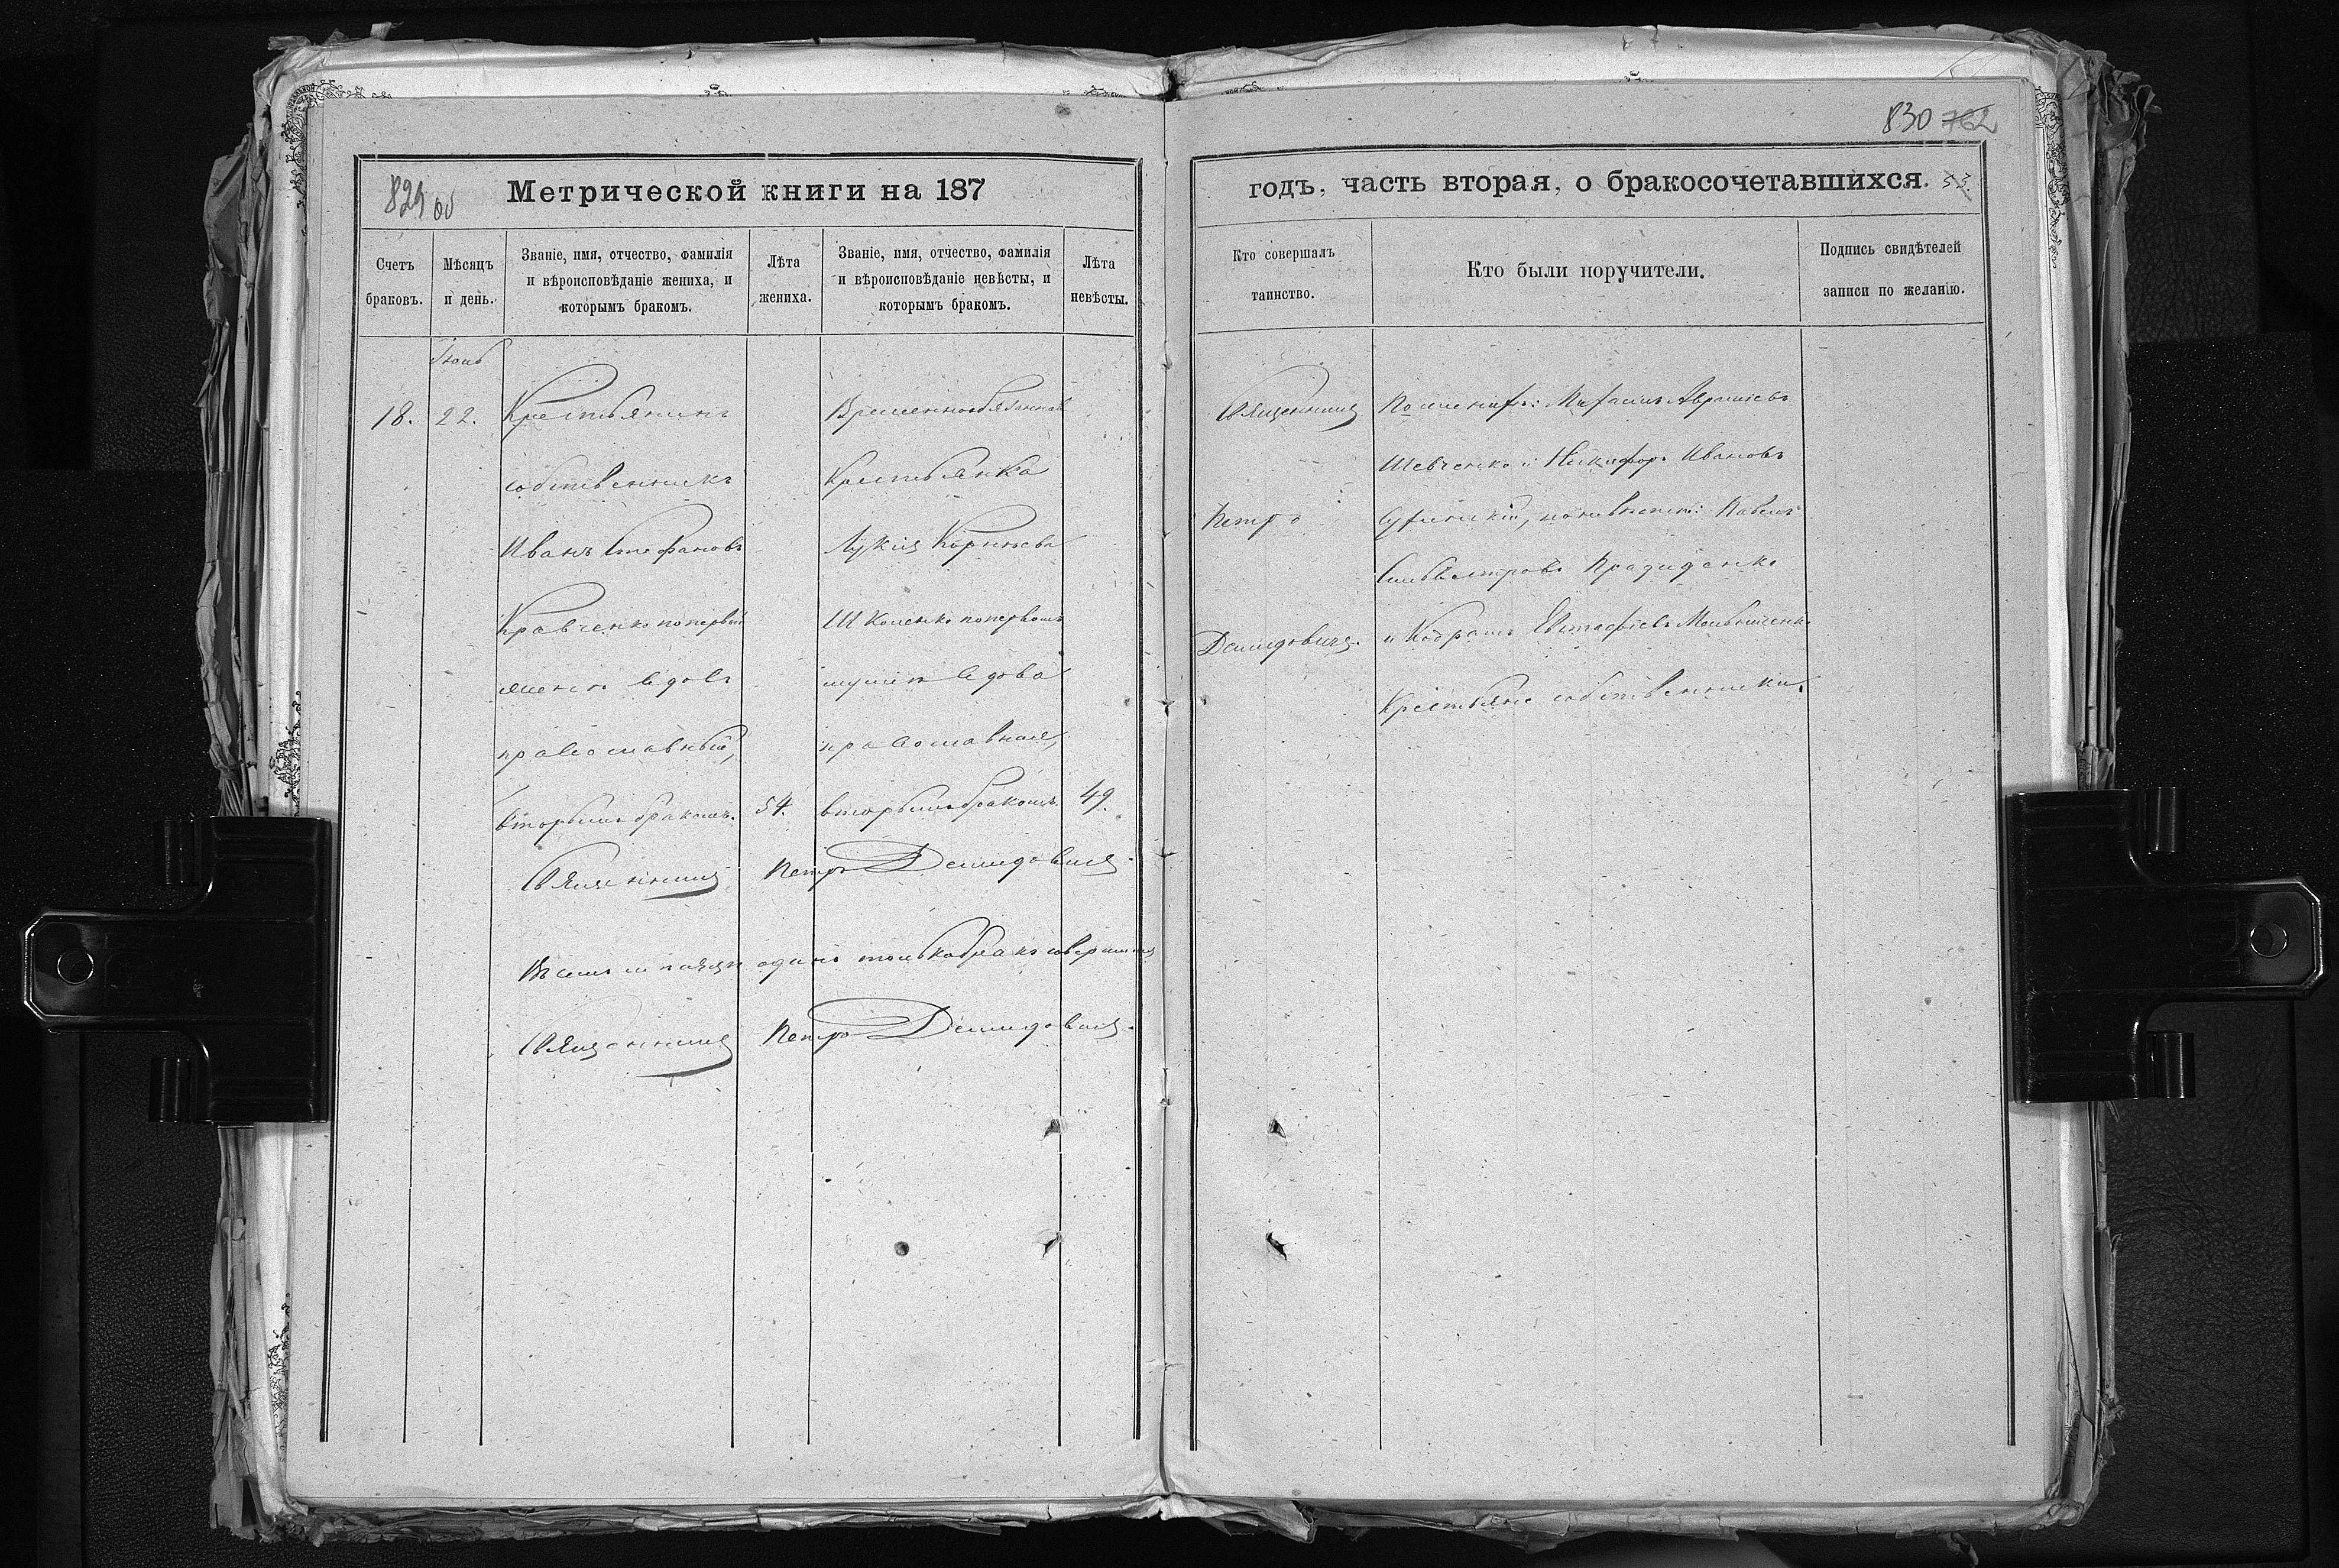 829
830 762
Метрической книги на 187
годъ, часть вторая, о бракосочетавшихся. 53
Счетъ браковъ.
Мѣсяцъ и день.
Званіе, имя, отчество, фамилія и вѣроисповѣданіе жениха, и которымъ бракомъ.
Лѣта жениха.
Званіе, имя, отчество, фамилія и вѣроисповѣданіе невѣсты, и которымъ бракомъ.
Лѣта невѣсты.
Кто совершалъ таинство.
Кто были поручители.
Подпись свидѣтелей записи по желанію.
18.
22.
Крестьянинъ
собственникъ
Иванъ Стефановъ
Кравченко по первой
женѣ вдовъ
православный,
вторымъ бракомъ.
54.
Временнообязанная
Крестьянка
Лукія Корнѣева
Школенко по первомъ
мужѣ вдова
православная,
вторымъ бракомъ.
49.
Священникъ Петръ Демидовичъ.
Въ семъ мѣсяцѣ одинъ только бракъ
Священникъ Петръ Демидовичъ.
Священникъ
Петръ
Демидовичъ.
По женихѣ: Авраміевъ
Шевченко и Никифоръ Ивановъ
по невѣстѣ: Павелъ
Сильвестровъ
и Кодратъ Евстафіевъ
Крестьяне собственники.